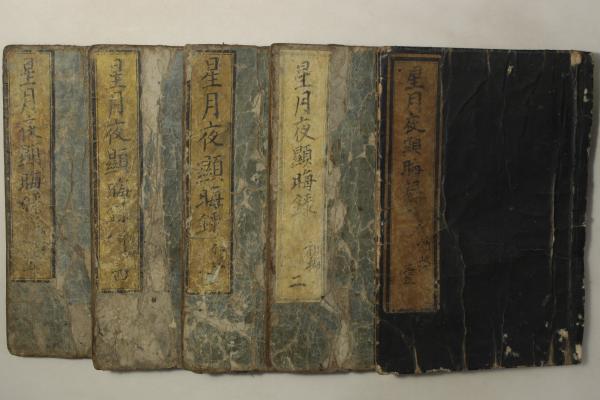 星月夜顕晦録 壹
星月夜顯晦録 二
星月夜顯晦録
星月夜顯晦録 四
星月夜顕晦録